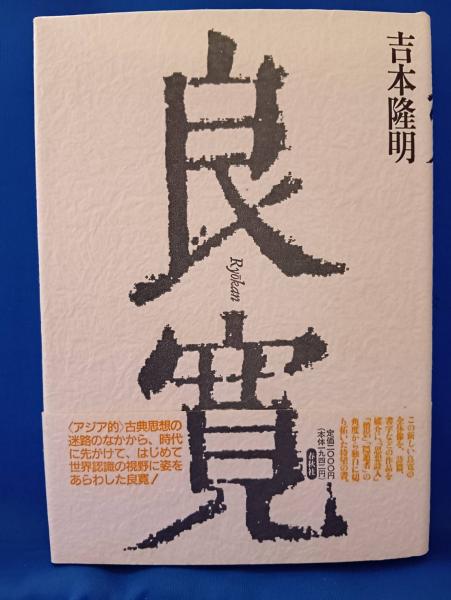 吉本隆明
良寛
Ryōkan
〈アジア的〉古典思想の
迷路のなかから、時代
に先がけて、はじめて
世界認識の視野に姿を
あらわした良寛!
定価二〇〇〇円
(本体一九四二円)
春秋社
この新しい良寛の
全体像を、詩歌、
書アなどの作品を
「僧侶」「隠遁者」の
角度から執拗に切
り拓いた待望の書。